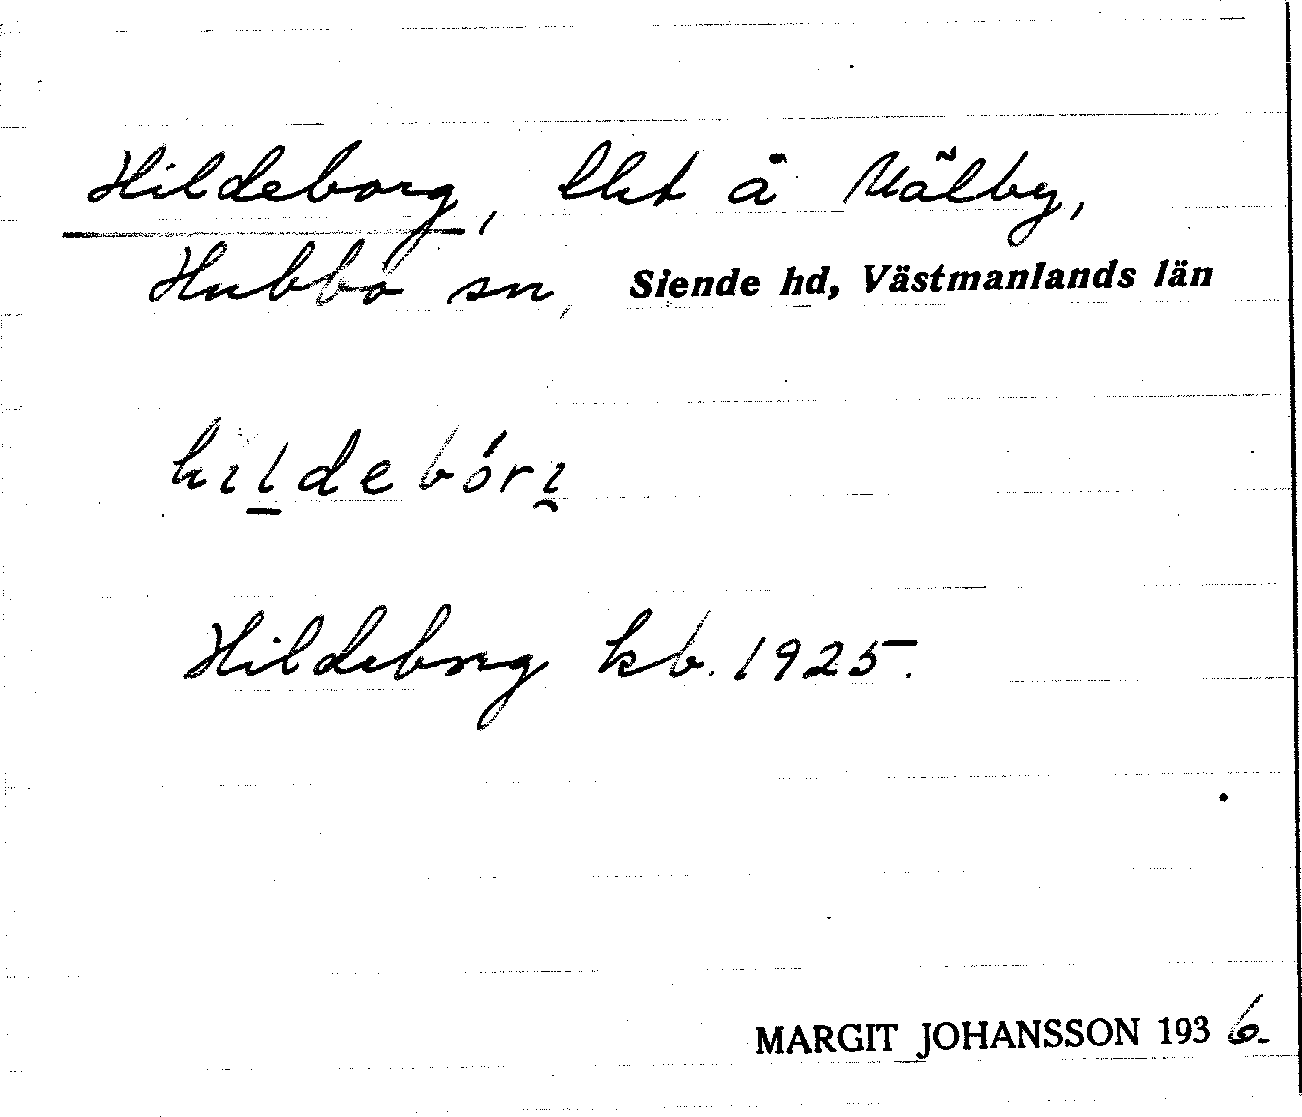 Hildeborg, lht å Målby,
Hubbo sn, Siende hd, Västmanlands län
hildebóri̯
Hildeborg kb. 1925.
MARGIT JOHANSSON 1936.